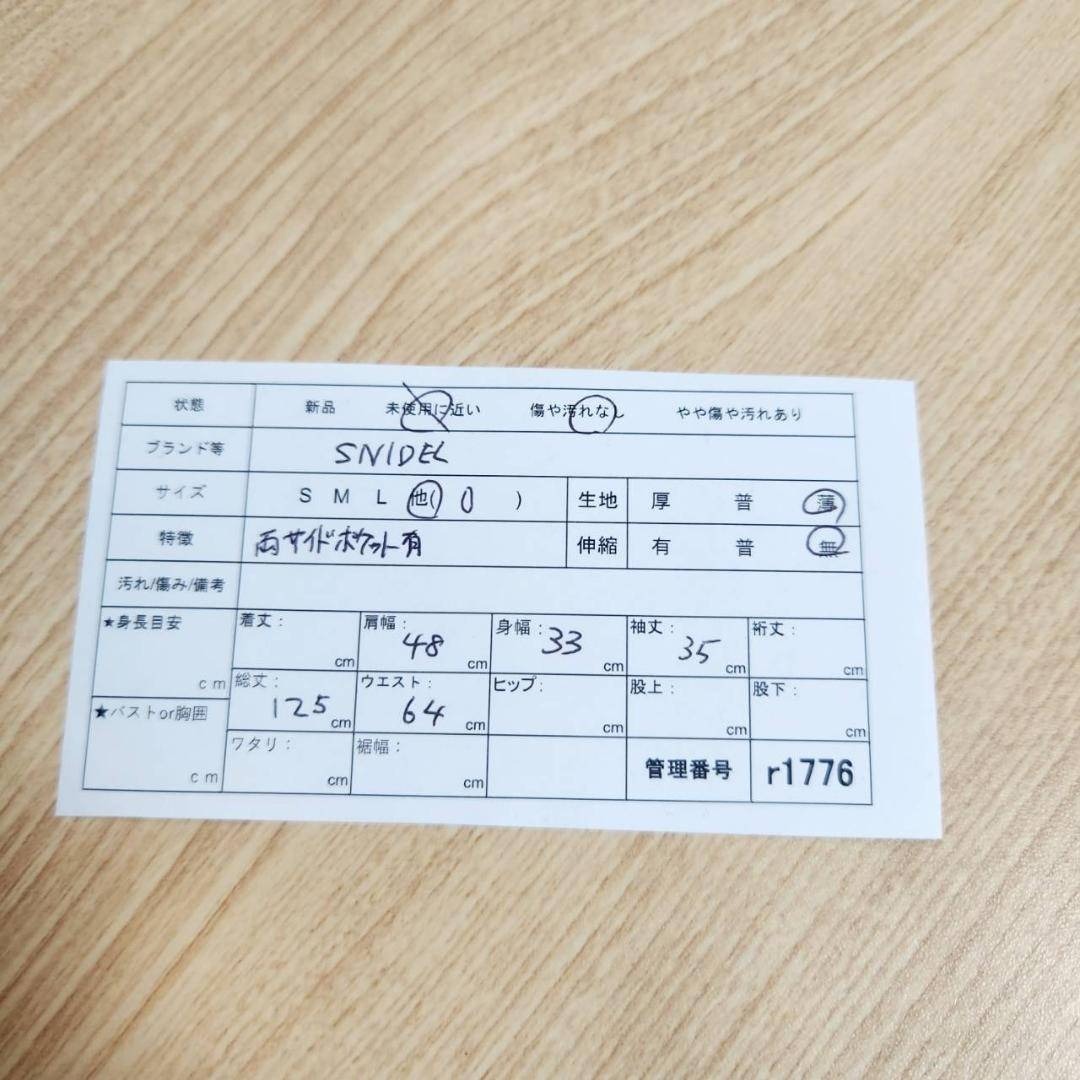 状態 新品 未使用に近い 傷や汚れなし やや傷や汚れあり
ブランド等 SNIDEL
サイズ S M L 他( 0 ) 生地 厚 普 薄
特徴 両サイドポケット有 伸縮 有 普 無
汚れ/傷み/備考
★身長目安 cm
着丈: cm 肩幅: 48 cm 身幅: 33 cm 袖丈: 35 cm 裄丈: cm
★バストor胸囲 cm
総丈: 125 cm ウエスト: 64 cm ヒップ: cm 股上: cm 股下: cm
ワタリ: cm 裾幅: cm 管理番号 r1776